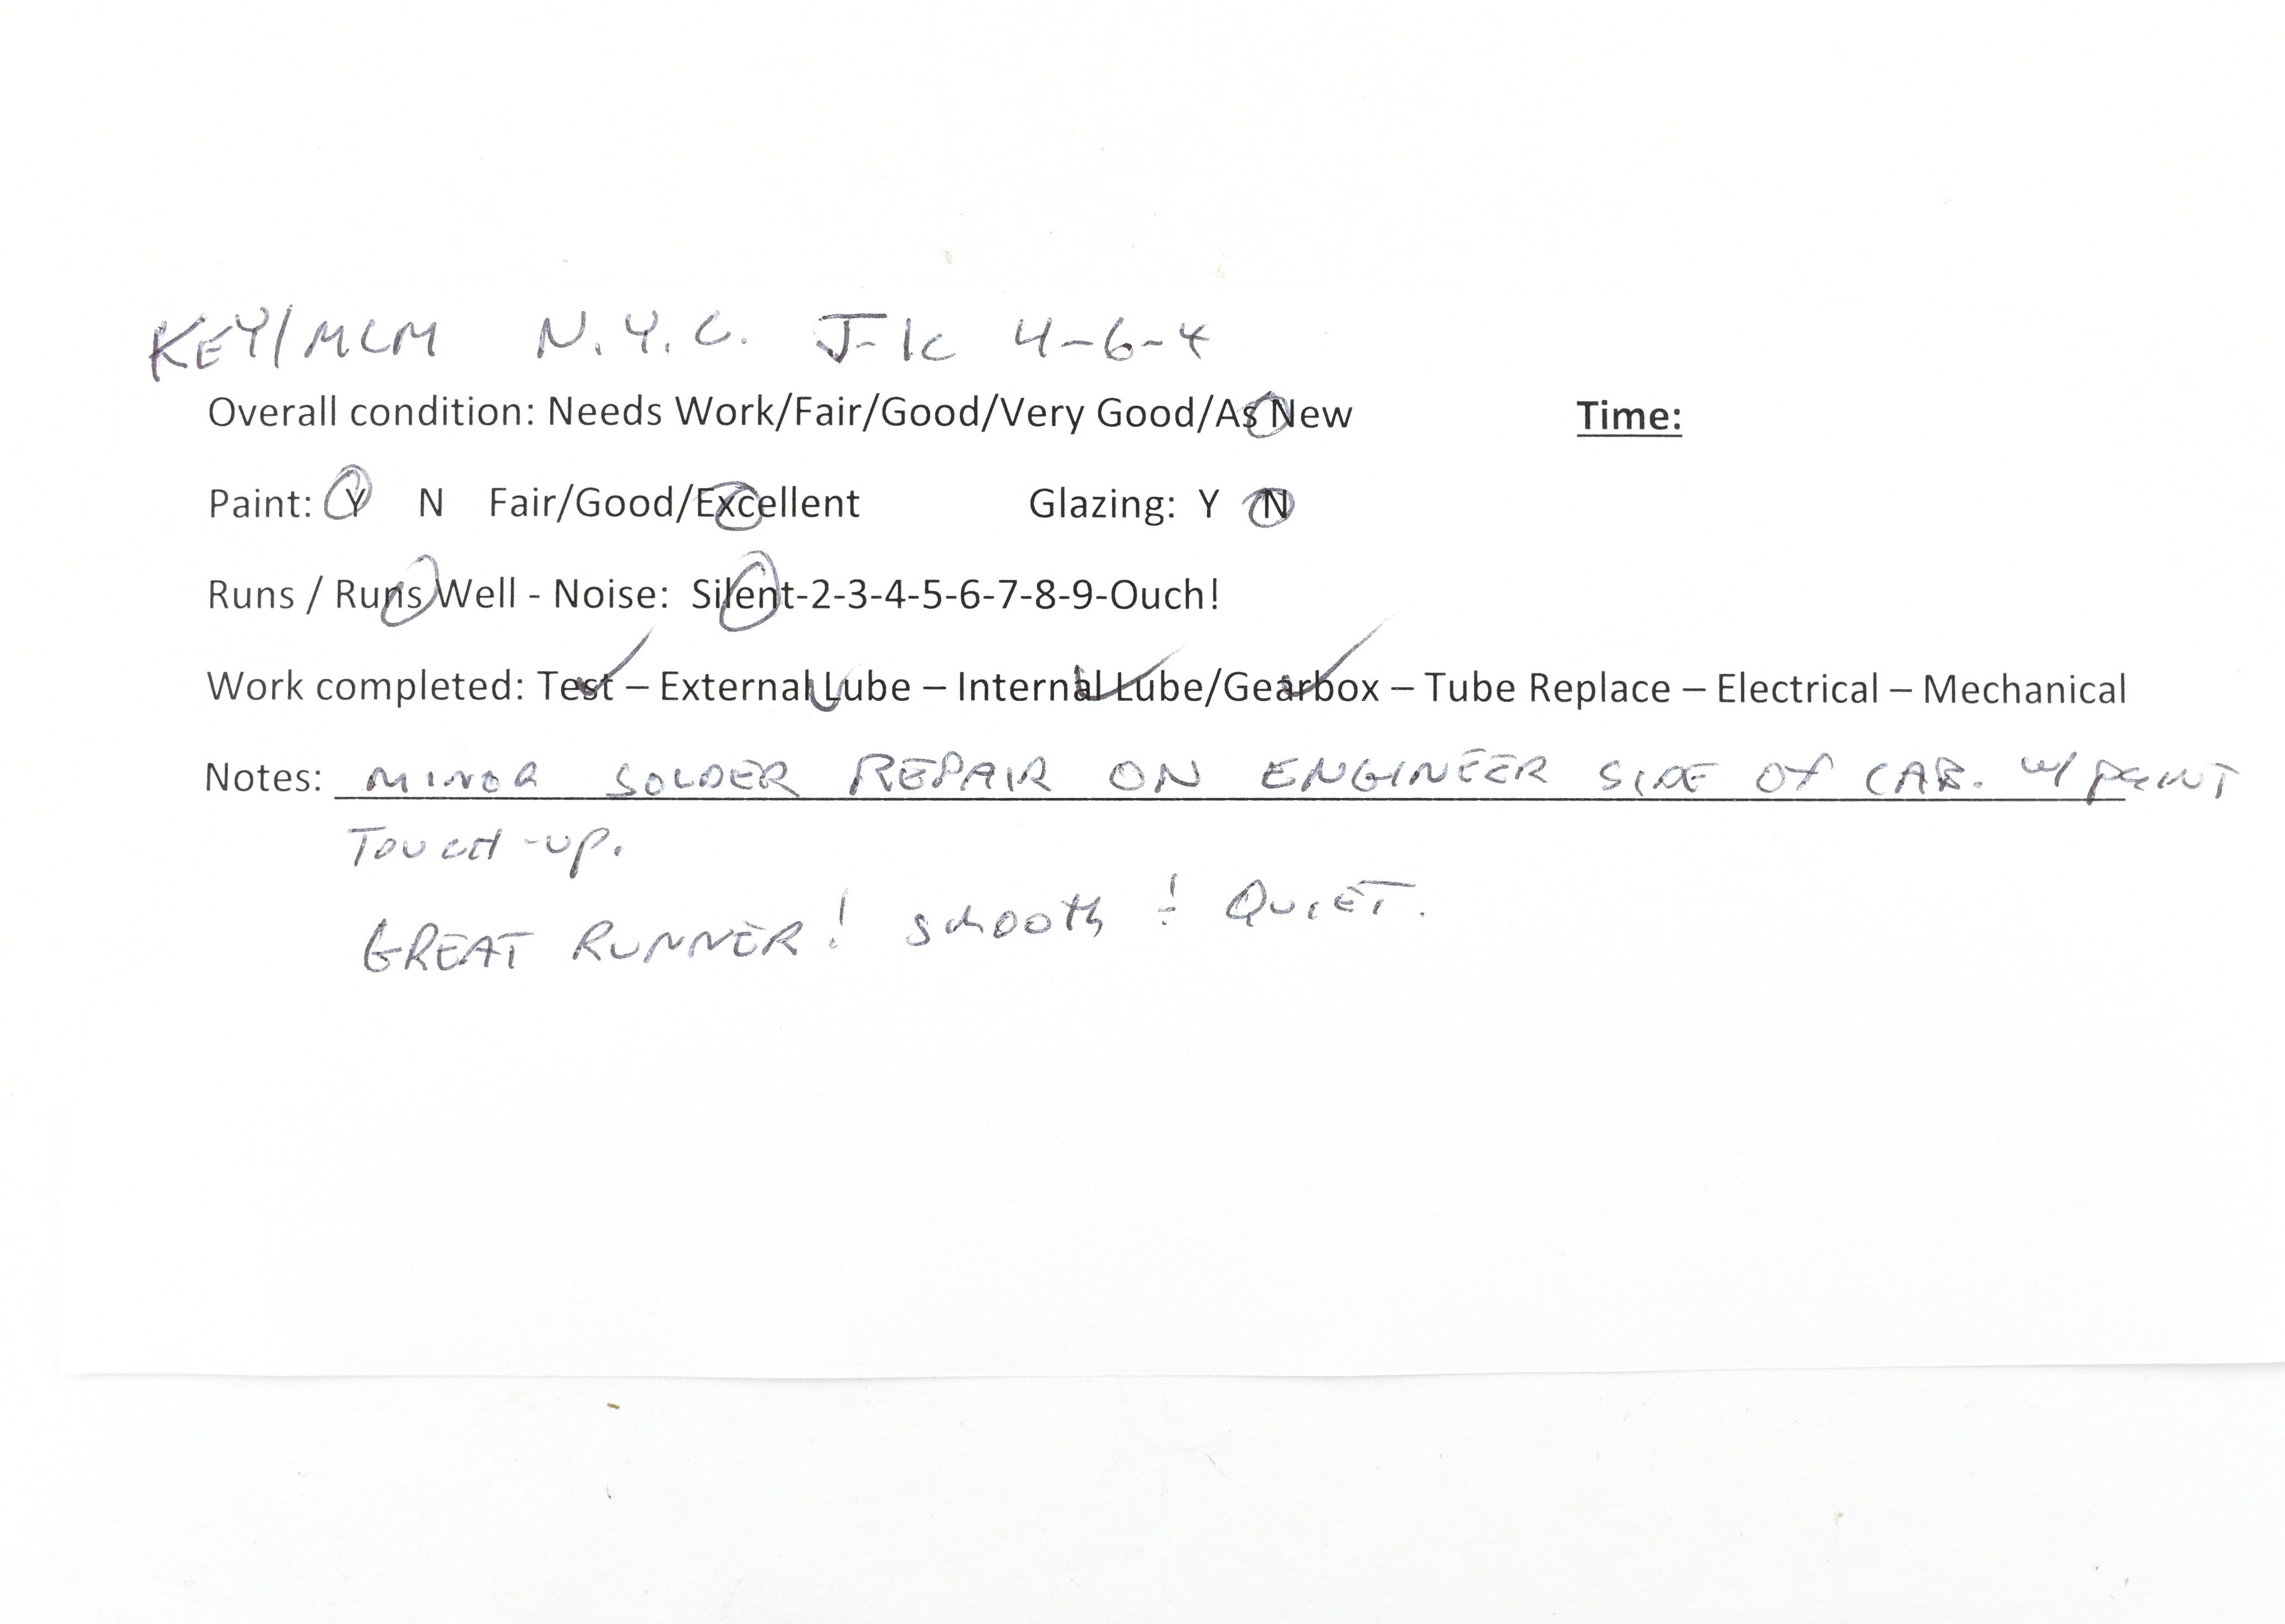 KEY/MCM N.Y.C. J-1c 4-6-4
Overall condition: Needs Work/Fair/Good/Very Good/As New Time:
Paint: Y N Fair/Good/Excellent Glazing: Y N
Runs / Runs Well - Noise: Silent-2-3-4-5-6-7-8-9-Ouch!
Work completed: Test – External Lube – Internal Lube/Gearbox – Tube Replace – Electrical – Mechanical
Notes: MINOR SOLDER REPAIR ON ENGINEER SIDE OF CAB. W/ PAINT
TOUCH-UP.
GREAT RUNNER! SMOOTH & QUIET.